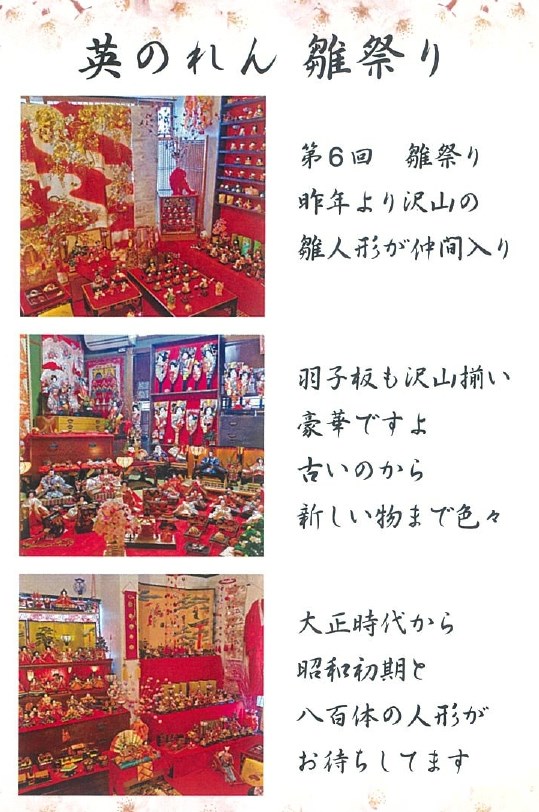 英のれん 雛祭り
第6回 雛祭り
昨年より沢山の
雛人形が仲間入り
羽子板も沢山揃い
豪華ですよ
古いのから
新しい物まで色々
大正時代から
昭和初期と
八百体の人形が
お待ちしてます